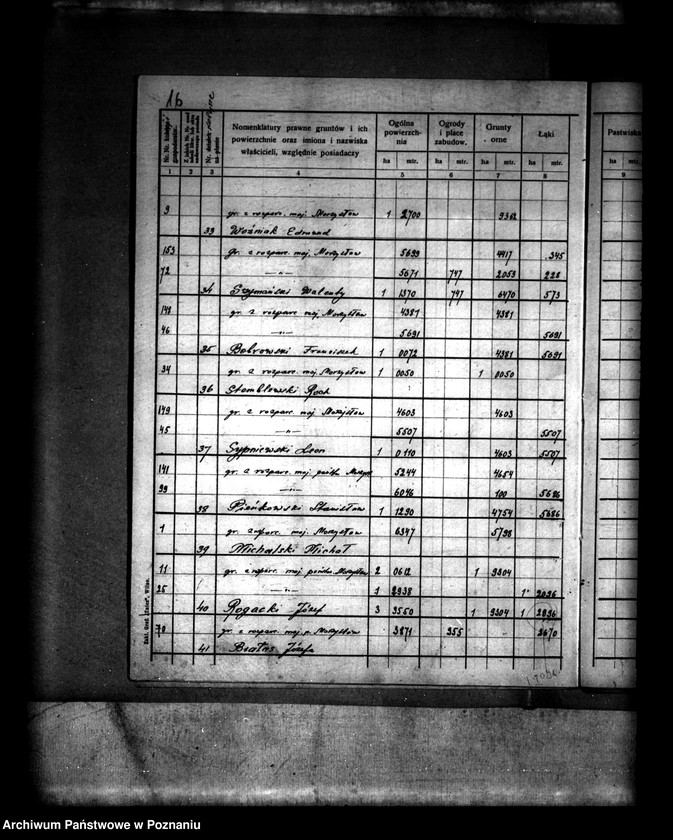 16
Nr. Nr. kolejne gospodarstw.
Nr. działek
Nomenklatury prawne gruntów i ich powierzchnie oraz imiona i nazwiska właścicieli, względnie posiadaczy
Ogólna powierzchnia
Ogrody i place zabudow.
Grunty orne
Łąki
Pastwiska
ha mtr. ha mtr. ha mtr. ha mtr.
1 2 3 4 5 6 7 8 9
9 gr. z rozparc. maj. Morzysław 1 2700 9362
33 Woźniak Edmund
153 gr. z rozparc. maj. Morzysław 5699 4417 345
72 —"— 5671 747 2053 228
34 Szymański Walenty 1 1370 747 6470 573
148 gr. z rozparc. maj. Morzysław 4381 4381
46 —"— 5691 5691
35 Bobrowski Franciszek 1 0072 4381 5691
34 gr. z rozparc. maj. Morzysław 1 0050 1 0050
36 Roch
149 gr. z rozparc. maj. Morzysław 4603 4603
45 —"— 5507 5507
37 Sypniewski Leon 1 0110 4603 5507
141 gr. z rozparc. maj. 5244 4654
99 —"— 6046 100 5686
38 Pieńkowski Stanisław 1 1290 4754 5686
1 gr. z rozparc. maj. Morzysław 6347 5798
39 Michalski Michał
11 gr. z rozparc. maj. 2 0612 1 9304
25 —"— 1 2938 1 2036
40 Rogacki Józef 3 3550 1 9304 1 2836
70 gr. z rozparc. maj. p. Morzysław 3871 355 2670
41 Józef
Zakł. Graf. "Znicz", Wilno.
Archiwum Państwowe w Poznaniu